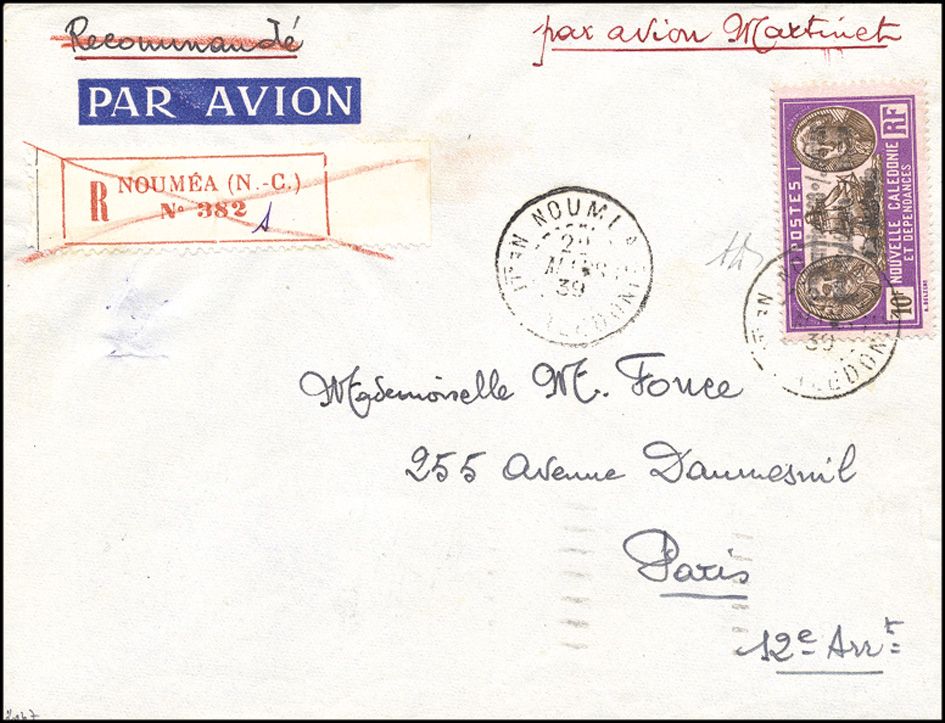 Recommandé
par avion Martinet
PAR AVION
R NOUMÉA (N.-C.)
N° 382
NOUM
MARS
39
POSTES
RF
NOUVELLE CALEDONIE
ET DEPENDANCES
10F
39
Mademoiselle M. Fonce
255 avenue Daumesnil
Paris
12e Arrt